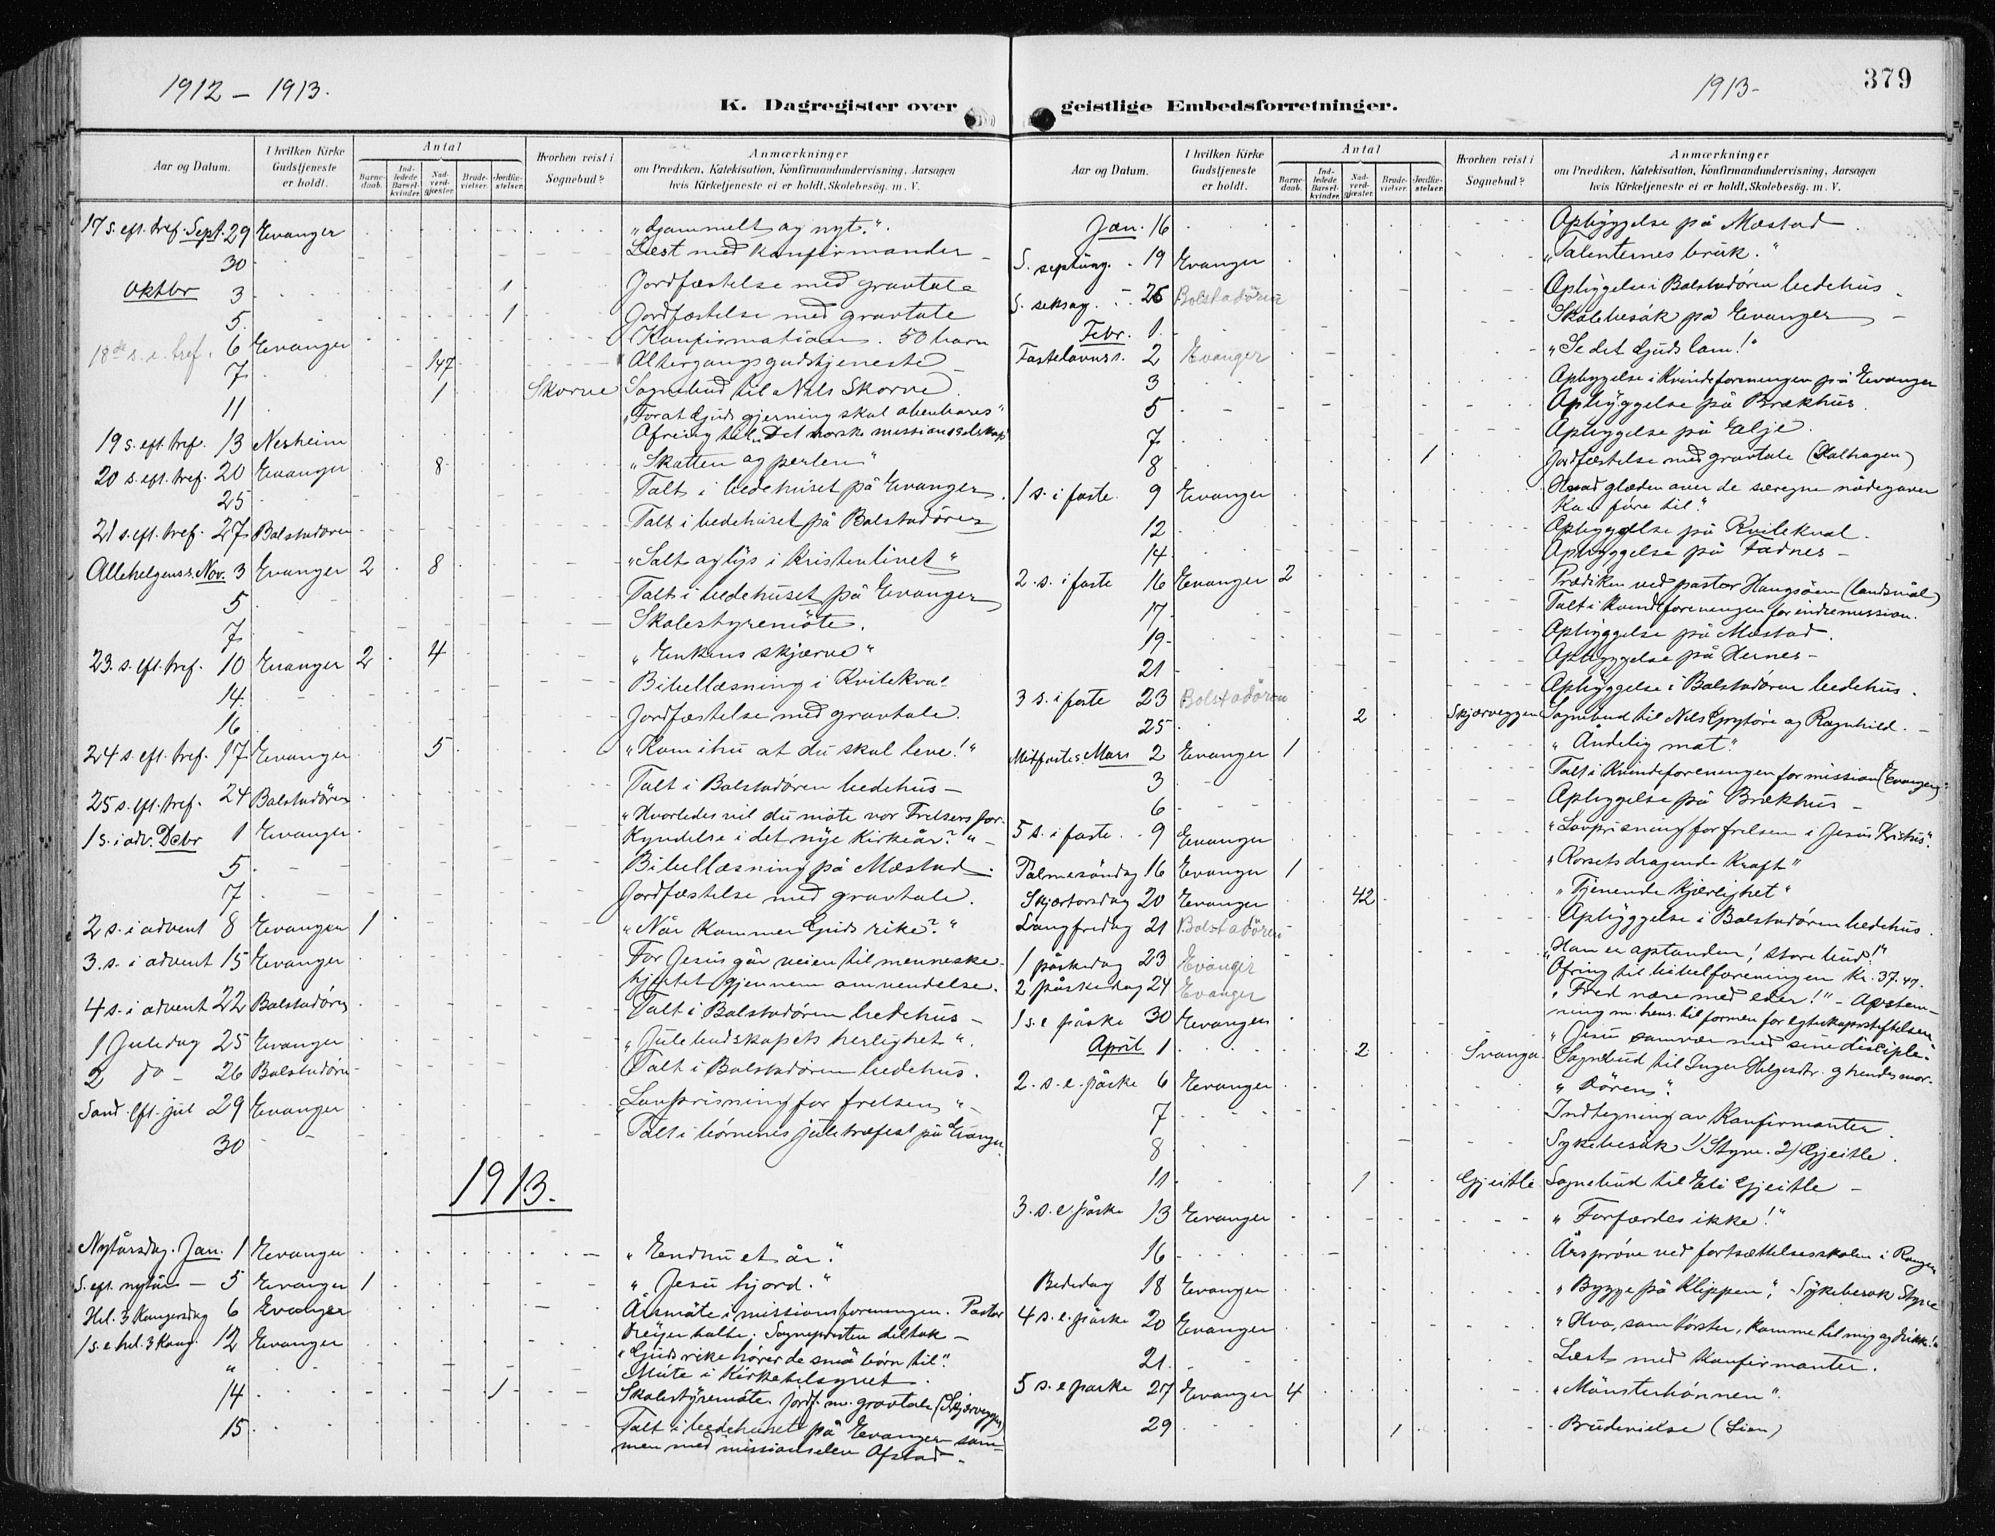 1912 – 1913.
K. Dagregister over
Aar og Datum.
I hvilken Kirke Gudstjeneste er holdt.
Antal
Barnedaab.
Indledede Barselkvinder.
Nadverdgjæster.
Brudevielser.
Jordfæstelser.
Hvorhen reist i Sognebud?
Anmærkninger
om Prædiken, Katekisation, Konfirmandundervisning, Aarsagen
hvis Kirketjeneste ei er holdt, Skolebesøg. m. V.
17 s. eft. tref. Sept. 29 Evanger „Gammelt og nyt.“
30 Læst med konfirmander
Oktbr 3 1 Jordfæstelse med gravtale
5. 1 Jordfæstelse med gravtale
18de s. e. tref. 6 Evanger Konfirmation. 50 barn
147 Altergangsgudstjeneste
7 1 Skorve Sognebud til Nils Skorve
11
19 s. eft. tref. 13 Nesheim „Forat Guds gjerning skal åbenbares“
Ofring til „Det norske missionsselskap“
20 s. eft. tref. 20 Evanger 8 „Skatten og perlen“
25 Talt i bedehuset på Evanger
21 s. eft. tref. 27 Bolstadøren Talt i bedehuset på Bolstadøren
Allehelgenss. Nov. 3 Evanger 2 8 „Salt og lys i kristenlivet“
5 Talt i bedehuset på Evanger
7 Skolestyremöte.
23. s. eft. tref. 10 Evanger 2 4 „Enkens skjærve“
14. Bibellæsning i Kvitekval
16 Jordfæstelse med gravtale.
24 s. eft. tref. 17 Evanger 5 „Kom ihu at du skal leve!“
25 s. eft. tref. 24 Bolstadören Talt i Bolstadören bedehus –
1 s. i adv. Decbr 1 Evanger „Hvorledes vil du möte vor Frelsers for-
kyndelse i det nye kirkeår?“ –
5 Bibellæsning på Mæstad.
7 Jordfæstelse med gravtale.
2 s. i advent 8 Evanger 1 „Når kommer Guds rike?“
3. s. i advent 15 Evanger For Jesus går veien til menneske-
hjertet gjennem omvendelse.
4 s. i advent 22 Bolstadören Talt i Bolstadören bedehus –
1 Juledag 25 Evanger „Julebudskapets herlighet“.
2 do – 26 Bolstadören Talt i Bolstadören bedehus.
Sönd. eft. jul 29 Evanger „Lovprisning for frelsen“ –
30 Talt i börnenes juletræfest på Evanger.
1913.
Nytårsdag. Jan. 1 Evanger „Endnu et år.“
S. eft. nytår – 5 Evanger 1 „Jesu hjord.“
Hel. 3 Kongersdag 6 Evanger Årsmöte i missionsforeningen. Pastor
Dreyer talte. Sognepresten deltok –
1 s. e. hel. 3 Kong. 12 Evanger „Guds rike hörer de små börn til“.
„ Möte i kirketilsynet.
14 1 Skolestyremöte. Jordf. m. gravtale (Skjærveggen)
15 Talt i bedehuset på Evanger sam-
men med missionselev Ofstad –
1913 – 379
geistlige Embedsforretninger.
Aar og Datum.
I hvilken Kirke Gudstjeneste er holdt.
Antal
Barnedaab.
Indledede Barselkvinder.
Nadverdgjæster.
Brudevielser.
Jordfæstelser.
Hvorhen reist i Sognebud?
Anmærkninger
om Prædiken, Katekisation, Konfirmandundervisning, Aarsagen
hvis Kirketjeneste ei er holdt, Skolebesög. m. V.
Jan. 16 Opbyggelse på Mæstad
S. septuag. 19 Evanger „Talenternes bruk.“
S. seksag. 26 Bolstadören Opbyggelse i Bolstadören bedehus –
Febr. 1. Skolebesök på Evanger –
Fastelavnss. 2 Evanger „Se det Guds lam!“
3 Opbyggelse i Kvindeforeningen på Evanger
5 Opbyggelse på Brækhus.
7 Opbyggelse på Elje.
8 1 Jordfæstelse med gravtale
1 s. i faste. 9 Evanger Hvad glæden over de særegne nådegaver
kan före til“
12 Opbyggelse på Kvitekval.
14 Opbyggelse på Fadnes –
2. s. i faste 16 Evanger 2 Prædiken ved pastor Haugsöen (landsmål)
17 Talt i Kvindeforeningen for indremission.
19 Opbyggelse på Mæstad.
21 Opbyggelse på Hernes –
3 s. i faste 23 Bolstadören Opbyggelse i Bolstadören bedehus.
25 2 Skjærveggen Sognebud til Nils Grytöre og Ragnhild. –
Midfastes. Mars 2 Evanger 1 „Åndelig mat“
3 Talt i Kvindeforeningen for mission (Evanger)
6 Opbyggelse på Brækhus –
5 s. i faste. 9 Evanger „Lovprisning for frelsen i Jesus Kristus“.
Palmesöndag 16 Evanger 1 „Korsets dragende kraft“
Skjærtorsdag 20 Evanger 42 „Tjenende kjærlighet“
Langfredag 21 Bolstadören Opbyggelse i Bolstadören bedehus.
1 påskedag 23 Evanger „Han er opstanden! store bud!“
Ofring til bibelforeningen kr. 37.47.
2 påskedag 24 Evanger „Fred være med eder!“ – Avstem-
ning m. hens. til formen for egteskapsstiftelsen
1 s. e påske 30 Evanger „Jesu samvær med sine disciple“
April 1 2 Svanga Sognebud til Inger Helgesdtr. og hendes mor.
2. s. e. påske 6 Evanger „Dören“.
7 Indtegning av konfirmanter.
8 Sykebesök 1/ Styve. 2/ Gjeitle.
11 1 Gjeitle Sognebud til Eli Gjeitle –
3. s. e påske 13 Evanger „Forfærdes ikke!“
16 Årspröve ved fortsættelsesskolen i
Bededag 18 Evanger „Bygge på klippen“, Sykebesök Styve
4 s. e. påske 20 Evanger „Hvo, som törster, komme til mig og drikke!“
21. Læst med konfirmanter.
5 s. e påske 27 Evanger 4 „Mönsterbönnen“.
29 1 Brudevielse (Lion)